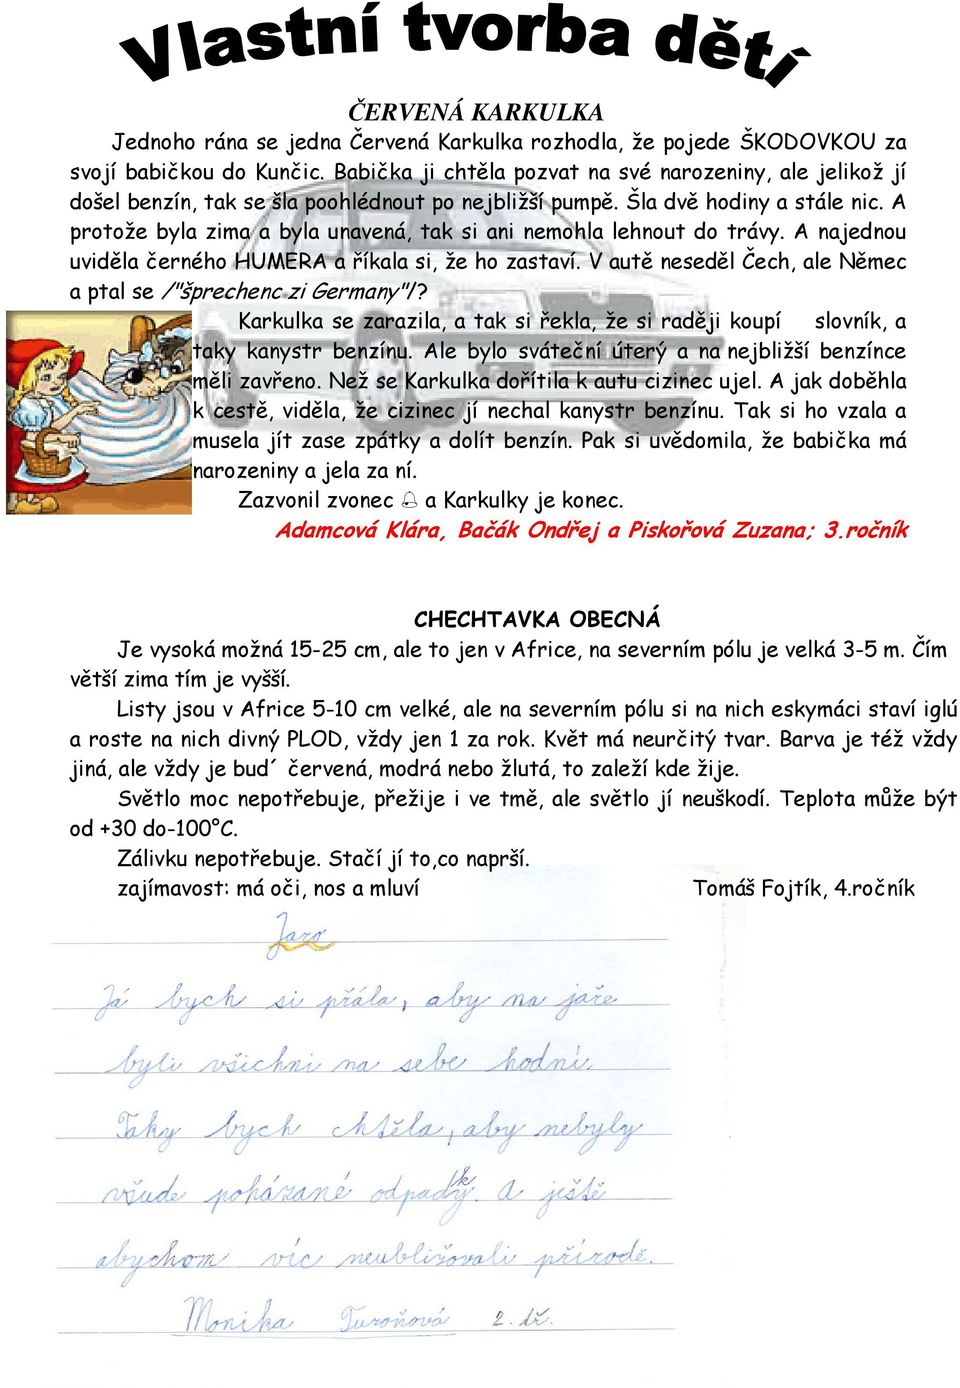 Vlastní tvorba dětí
ČERVENÁ KARKULKA
Jednoho rána se jedna Červená Karkulka rozhodla, že pojede ŠKODOVKOU za
svojí babičkou do Kunčic. Babička ji chtěla pozvat na své narozeniny, ale jelikož jí
došel benzín, tak se šla poohlédnout po nejbližší pumpě. Šla dvě hodiny a stále nic. A
protože byla zima a byla unavená, tak si ani nemohla lehnout do trávy. A najednou
uviděla černého HUMERA a říkala si, že ho zastaví. V autě neseděl Čech, ale Němec
a ptal se /"šprechenc zi Germany"/?
Karkulka se zarazila, a tak si řekla, že si raději koupí slovník, a
taky kanystr benzínu. Ale bylo sváteční úterý a na nejbližší benzínce
měli zavřeno. Než se Karkulka dořítila k autu cizinec ujel. A jak doběhla
k cestě, viděla, že cizinec jí nechal kanystr benzínu. Tak si ho vzala a
musela jít zase zpátky a dolít benzín. Pak si uvědomila, že babička má
narozeniny a jela za ní.
Zazvonil zvonec 🔔 a Karkulky je konec.
Adamcová Klára, Bačák Ondřej a Piskořová Zuzana; 3.ročník
CHECHTAVKA OBECNÁ
Je vysoká možná 15-25 cm, ale to jen v Africe, na severním pólu je velká 3-5 m. Čím
větší zima tím je vyšší.
Listy jsou v Africe 5-10 cm velké, ale na severním pólu si na nich eskymáci staví iglú
a roste na nich divný PLOD, vždy jen 1 za rok. Květ má neurčitý tvar. Barva je též vždy
jiná, ale vždy je bud´ červená, modrá nebo žlutá, to zaleží kde žije.
Světlo moc nepotřebuje, přežije i ve tmě, ale světlo jí neuškodí. Teplota může být
od +30 do-100°C.
Zálivku nepotřebuje. Stačí jí to,co naprší.
zajímavost: má oči, nos a mluví Tomáš Fojtík, 4.ročník
Jaro
Já bych si přála, aby na jaře
byli všichni na sebe hodní.
Taky bych chtěla, aby nebyly
všude poházané odpadky. A ještě
abychom víc neubližovali přírodě.
Monika Turoňová 2. tř.